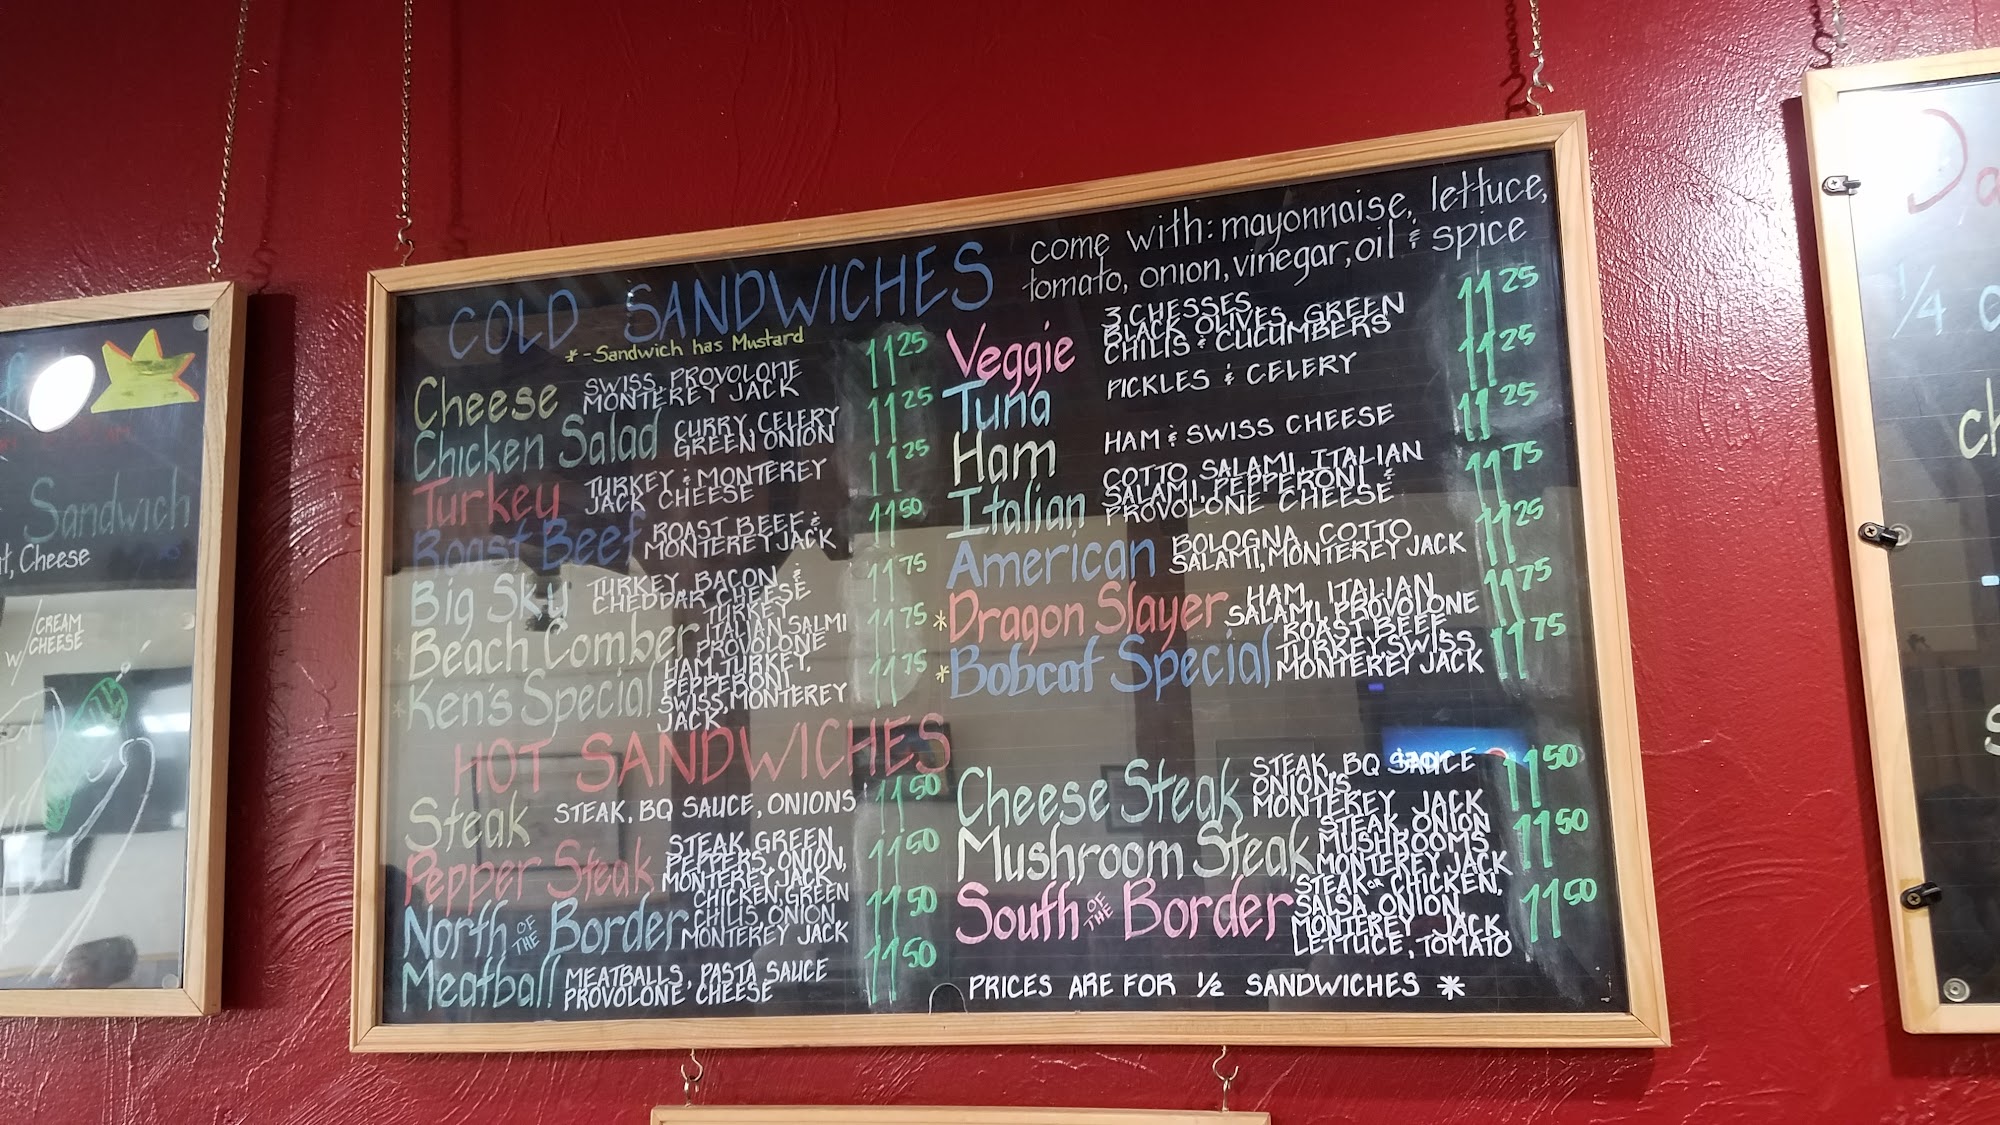 COLD SANDWICHES
come with: mayonnaise, lettuce,
tomato, onion, vinegar, oil & spice
* - Sandwich has Mustard
Cheese SWISS, PROVOLONE 11 25
MONTEREY JACK
Chicken Salad CURRY, CELERY 11 25
GREEN ONION
Turkey TURKEY & MONTEREY 11 25
JACK CHEESE
Roast Beef ROAST BEEF & 11 50
MONTEREY JACK
Big Sky TURKEY, BACON, & 11 75
CHEDDAR CHEESE
* Beach Comber TURKEY 11 75
ITALIAN SALMI
PROVOLONE
* Ken's Special HAM, TURKEY, 11 75
PEPPERONI
SWISS, MONTEREY
JACK
Veggie 3 CHESSES, 11 25
BLACK OLIVES, GREEN
CHILIS & CUCUMBERS
Tuna PICKLES & CELERY 11 25
Ham HAM & SWISS CHEESE 11 25
Italian COTTO SALAMI, ITALIAN 11 75
SALAMI, PEPPERONI &
PROVOLONE CHEESE
American BOLOGNA, COTTO 11 25
SALAMI, MONTEREY JACK
* Dragon Slayer HAM, ITALIAN 11 75
SALAMI, PROVOLONE
* Bobcat Special ROAST BEEF 11 75
TURKEY, SWISS
MONTEREY JACK
HOT SANDWICHES
Steak STEAK, BQ SAUCE, ONIONS 11 50
Pepper Steak STEAK, GREEN 11 50
PEPPERS, ONION,
MONTEREY JACK
North OF THE Border CHICKEN, GREEN 11 50
CHILIS, ONION
MONTEREY JACK
Meatball MEATBALLS, PASTA SAUCE 11 50
PROVOLONE CHEESE
Cheese Steak STEAK, BQ SAUCE 11 50
ONIONS
MONTEREY JACK
Mushroom Steak STEAK, ONION 11 50
MUSHROOMS
MONTEREY JACK
South OF THE Border STEAK OR CHICKEN, 11 50
SALSA, ONION,
MONTEREY JACK,
LETTUCE, TOMATO
PRICES ARE FOR 1/2 SANDWICHES *
Sandwich
, Cheese
W/ CREAM
CHEESE
1/4